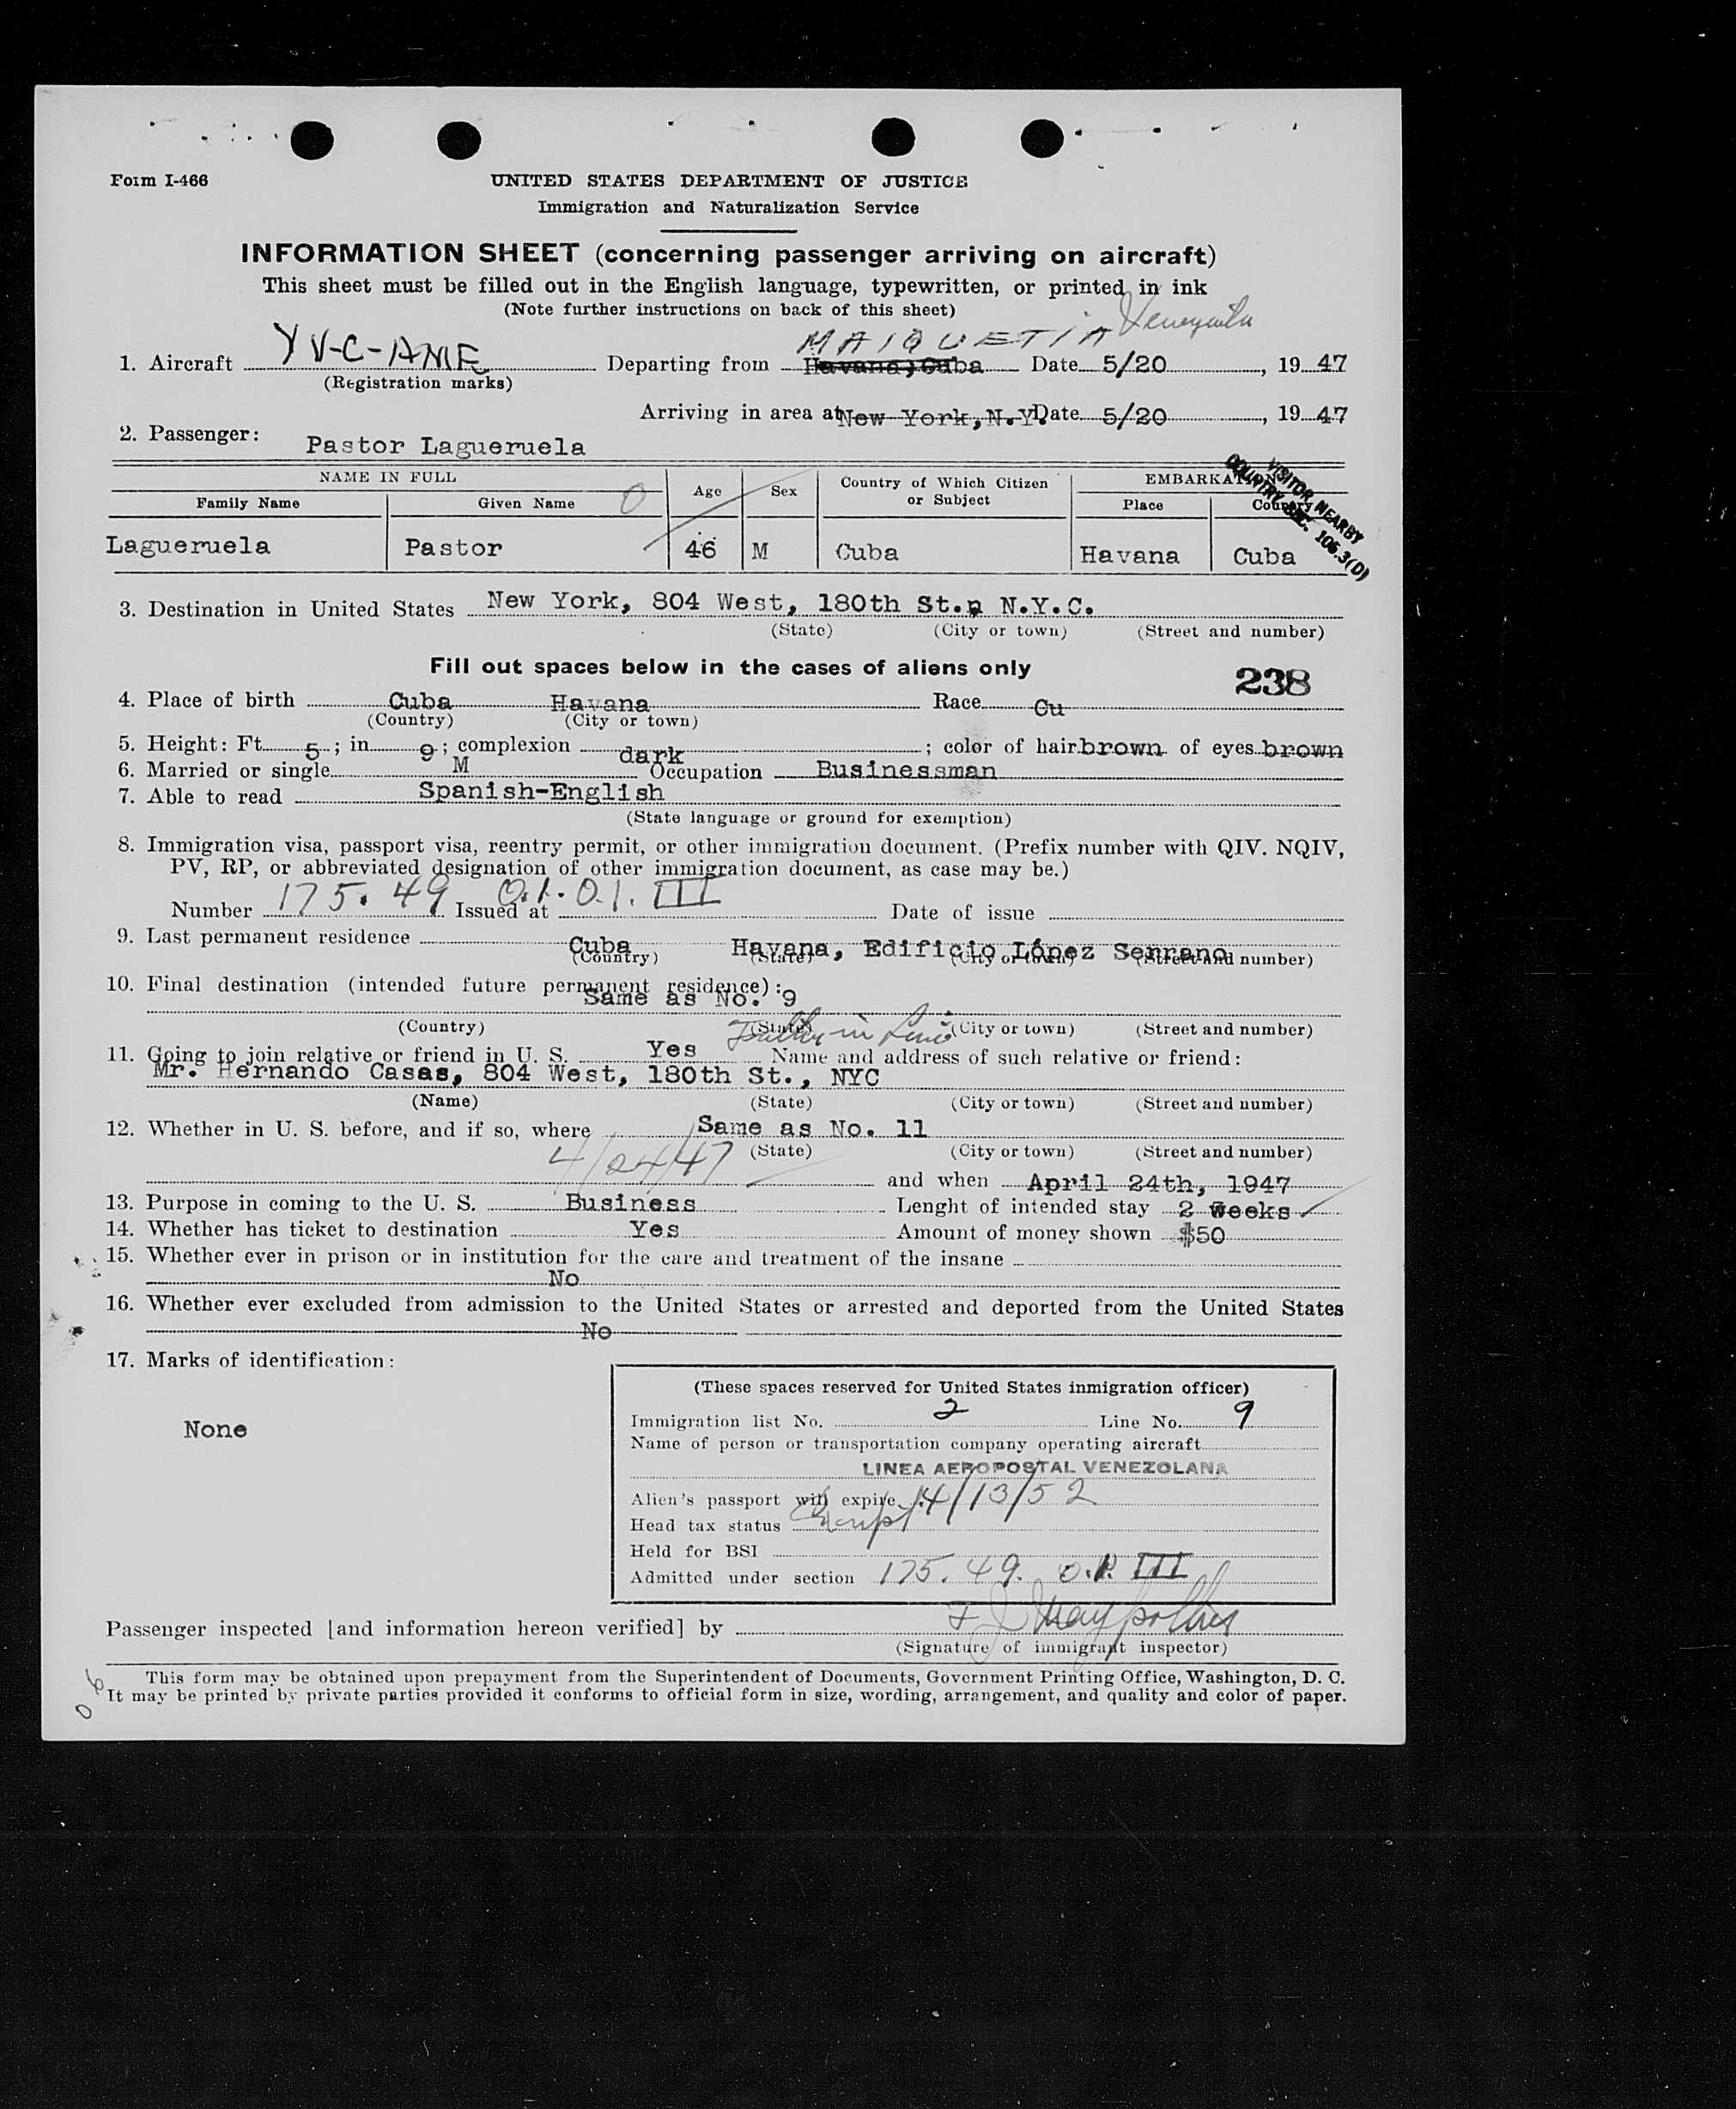 Form I-466
UNITED STATES DEPARTMENT OF JUSTICE
Immigration and Naturalization Service
INFORMATION SHEET (concerning passenger arriving on aircraft)
This sheet must be filled out in the English language, typewritten, or printed in ink
(Note further instructions on back of this sheet)
MAIQUETIA Venezuela
1. Aircraft YV-C-AME Departing from Havana, Cuba Date 5/20, 1947
(Registration marks)
Arriving in area at New York, N.Y. Date 5/20, 1947
2. Passenger: Pastor Lagueruela
NAME IN FULL Age Sex Country of Which Citizen or Subject EMBARKATION
Family Name Given Name Place Country
VISITOR, NEARBY
COUNTRY SEC. 106.3(D)
Lagueruela Pastor 46 M Cuba Havana Cuba
3. Destination in United States New York, 804 West, 180th St., N.Y.C.
(State) (City or town) (Street and number)
Fill out spaces below in the cases of aliens only
238
4. Place of birth Cuba Havana Race Cu
(Country) (City or town)
5. Height: Ft. 5; in 9; complexion dark; color of hair brown of eyes brown
6. Married or single M Occupation Businessman
7. Able to read Spanish-English
(State language or ground for exemption)
8. Immigration visa, passport visa, reentry permit, or other immigration document. (Prefix number with QIV. NQIV,
PV, RP, or abbreviated designation of other immigration document, as case may be.)
Number 175.49 Issued at O.1.O.1. III Date of issue
9. Last permanent residence Cuba Havana, Edificio López Serrano
(Country) (State) (City or town) (Street and number)
10. Final destination (intended future permanent residence):
Same as No. 9
(Country) (State) (City or town) (Street and number)
11. Going to join relative or friend in U. S. Yes Name and address of such relative or friend:
Mr. Hernando Casas, 804 West, 180th St., NYC
(Name) (State) (City or town) (Street and number)
12. Whether in U. S. before, and if so, where Same as No. 11
(State) (City or town) (Street and number)
4/24/47 and when April 24th, 1947
13. Purpose in coming to the U. S. Business Lenght of intended stay 2 Weeks
14. Whether has ticket to destination Yes Amount of money shown $50
15. Whether ever in prison or in institution for the care and treatment of the insane
No
16. Whether ever excluded from admission to the United States or arrested and deported from the United States
No
17. Marks of identification:
None
(These spaces reserved for United States inmigration officer)
Immigration list No. 2 Line No. 9
Name of person or transportation company operating aircraft
LINEA AEROPOSTAL VENEZOLANA
Alien's passport will expire 4/13/52
Head tax status Exempt
Held for BSI
Admitted under section 175.49. O.1. III
Passenger inspected [and information hereon verified] by
(Signature of immigrant inspector)
This form may be obtained upon prepayment from the Superintendent of Documents, Government Printing Office, Washington, D. C.
It may be printed by private parties provided it conforms to official form in size, wording, arrangement, and quality and color of paper.